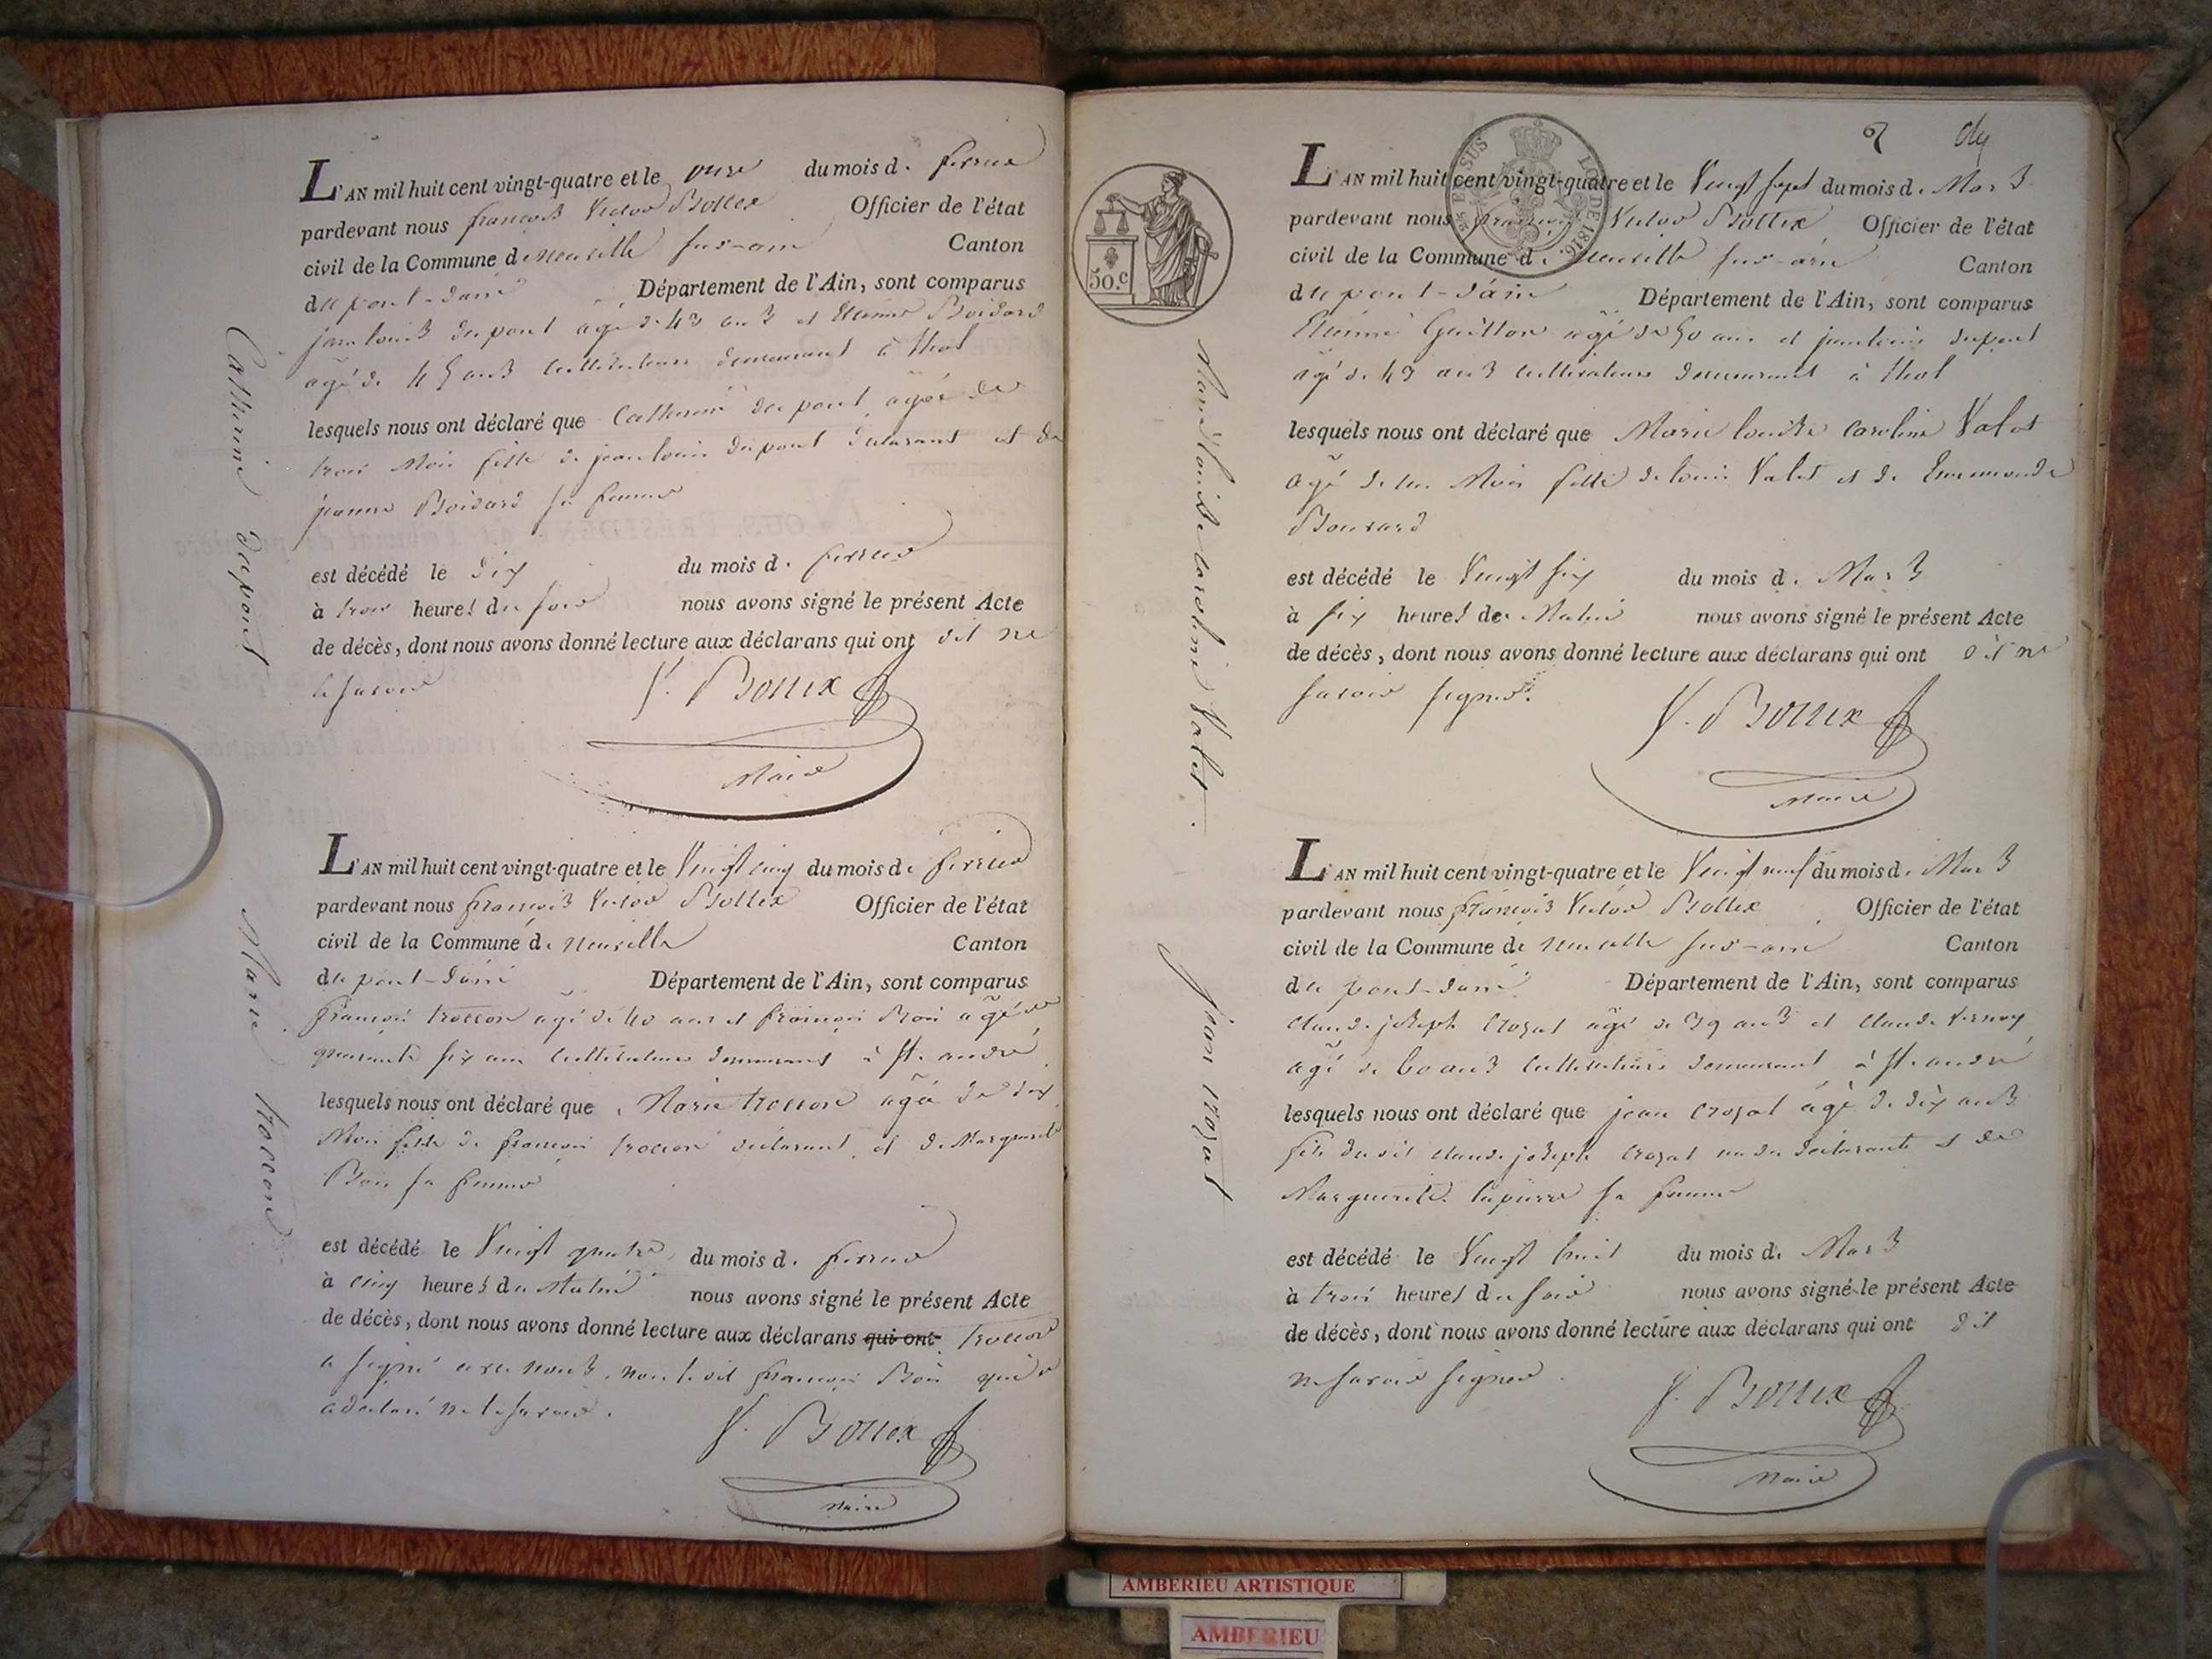 L'AN mil huit cent vingt-quatre et le onze du mois de fevrier
pardevant nous françois Victor Bottex Officier de l'état
civil de la Commune de Neuville sur-ain Canton
du pont-dain Département de l'Ain, sont comparus
jean louis dupont agé de 43 ans et Etienne Boidard
agé de 45 ans cultivateurs demeurant à thol
lesquels nous ont déclaré que Catherine dupont agée de
trois Mois fille de jean louis dupont déclarant et de
jeanne Boidard sa femme
est décédé le dix du mois de fevrier
à trois heures du soir nous avons signé le présent Acte
de décès, dont nous avons donné lecture aux déclarans qui ont dit ne
le savoir
V. Bottex
Maire
Catherine dupont
L'AN mil huit cent vingt-quatre et le Vingt cinq du mois de fevrier
pardevant nous françois Victor Bottex Officier de l'état
civil de la Commune de Neuville Canton
du pont-dain Département de l'Ain, sont comparus
françois trocon agé de 40 ans et françois Bon agé de
quarante six ans cultivateurs demeurant à St. andré
lesquels nous ont déclaré que Marie trocon agée de dix
Mois fille de françois trocon déclarant et de Marguerite
Bon sa femme
est décédé le Vingt quatre du mois de fevrier
à cinq heures du Matin nous avons signé le présent Acte
de décès, dont nous avons donné lecture aux déclarans qui ont trocon
a signé avec nous, non le dit françois Bon qui
a déclaré ne le savoir.
V. Bottex
Maire
Marie trocon
L'AN mil huit cent vingt-quatre et le Vingt sept du mois de Mars
pardevant nous françois Victor Bottex Officier de l'état
civil de la Commune de Neuville sur-ain Canton
du pont-d'ain Département de l'Ain, sont comparus
Etienne Guillon agé de 50 ans et jean louis dupont
agé de 43 ans cultivateurs demeurant à thol
lesquels nous ont déclaré que Marie louise caroline Valet
agé de un Mois fille de louis Valet et de Ennemonde
Bouvard
est décédé le Vingt six du mois de Mars
à six heures du Matin nous avons signé le présent Acte
de décès, dont nous avons donné lecture aux déclarans qui ont dit ne
savoir signer.
V. Bottex
Maire
Marie louise caroline Valet.
50.c
LOI DE 1816.
L'AN mil huit cent vingt-quatre et le Vingt neuf du mois de Mars
pardevant nous françois Victor Bottex Officier de l'état
civil de la Commune de Neuville sur-ain Canton
du pont-dain Département de l'Ain, sont comparus
Claude joseph Crozat agé de 39 ans et Claude
agé de 60 ans cultivateurs demeurant à St. andré
lesquels nous ont déclaré que jean Crozat agé de dix ans
fils dudit claude joseph Crozat un des déclarants et de
Marguerite lapierre sa femme
est décédé le Vingt huit du mois de Mars
à trois heures du soir nous avons signé le présent Acte
de décès, dont nous avons donné lecture aux déclarans qui ont dit
ne savoir signer.
V. Bottex
Maire
Jean Crozat
AMBERIEU ARTISTIQUE
AMBERIEU